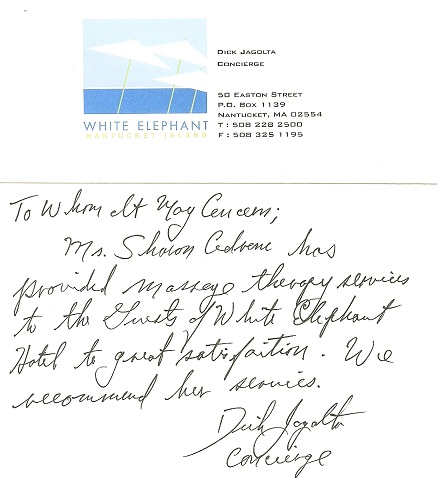 DICK JAGOLTA
CONCIERGE
50 EASTON STREET
P.O. BOX 1139
NANTUCKET, MA 02554
T: 508 228 2500
F: 508 325 1195
WHITE ELEPHANT
NANTUCKET ISLAND
To Whom It May Concern;
Ms. Sharon has
provided massage therapy services
to the Guests of White Elephant
Hotel to great satisfaction. We
recommend her services.
Dick Jagolta
Concierge